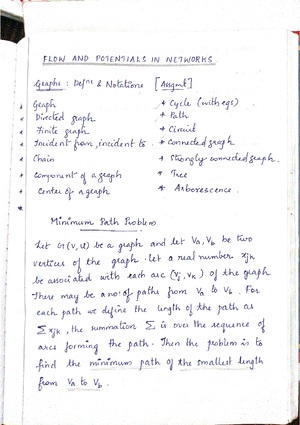 FLOW AND POTENTIALS IN NETWORKS
Graphs : Defns & Notations [Assgmt]
* Graph * Cycle (with egs)
* Directed graph * Path
* Finite graph * Circuit
* Incident from, incident to * Connected graph
* Chain * Strongly connected graph.
* Component of a graph * Tree
* Center of a graph * Arborescence.
*
Minimum Path Problem
Let G(V,U) be a graph and let Va, Vb be two
vertices of the graph. Let a real number xjk
be associated with each arc (Vj, Vk) of the graph
There may be a no. of paths from Va to Vb. For
each path we define the length of the path as
Σ xjk, the summation Σ is over the sequence of
arcs forming the path. Then the problem is to
find the minimum path of the smallest length
from Va to Vb.